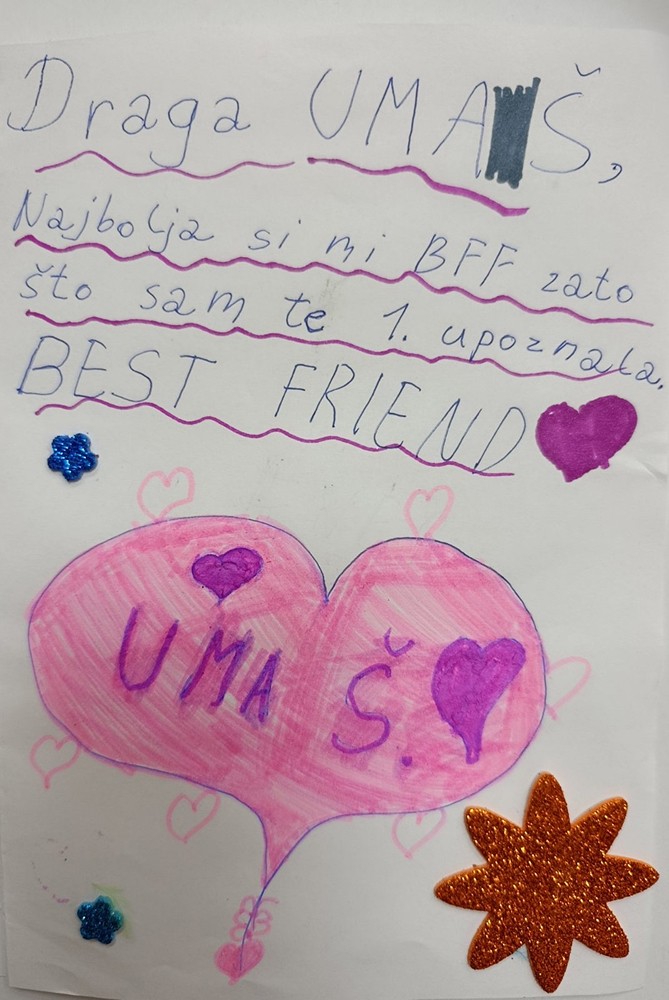 Draga UMA Š,
Najbolja si mi BFF zato
što sam te 1. upoznala.
BEST FRIEND
UMA Š.